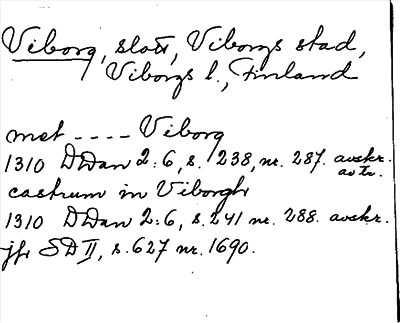 Viborg, slott, Viborgs stad,
Viborgs l., Finland
met ---- Viborg
1310 DDan 2:6, s. 238, nr. 287. avskr.
av tr.
castrum in Viborgh
1310 DDan 2:6, s. 241 nr. 288. avskr.
jfr SD II, s. 627 nr. 1690.